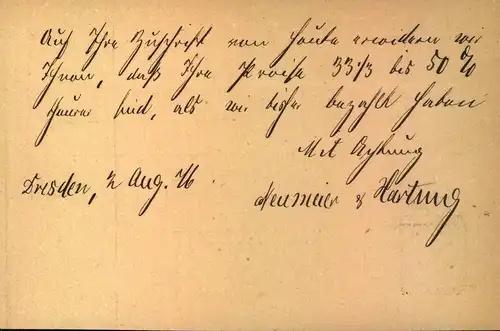 Auf Ihre Zuschrift von heute erwidern wir
Ihnen, daß Ihre Preise 33⅓ bis 50 %
theurer sind, als wir bisher bezahlt haben
Mit Achtung
Dresden, 2 Aug. 76.
Neumeier & Hartung